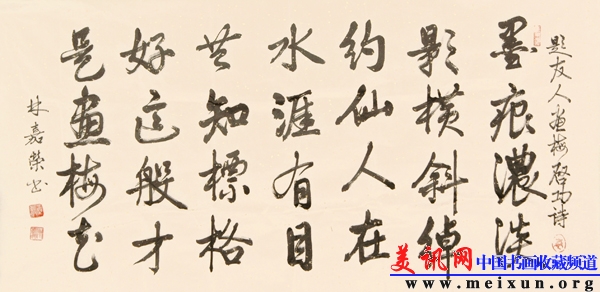 題友人畫梅啟功詩
墨痕濃淡
影橫斜綽
約仙人在
水涯有目
共知標格
好這般才
是畫梅花
林嘉榮書
美讯网
中国书画收藏频道
www.meixun.org